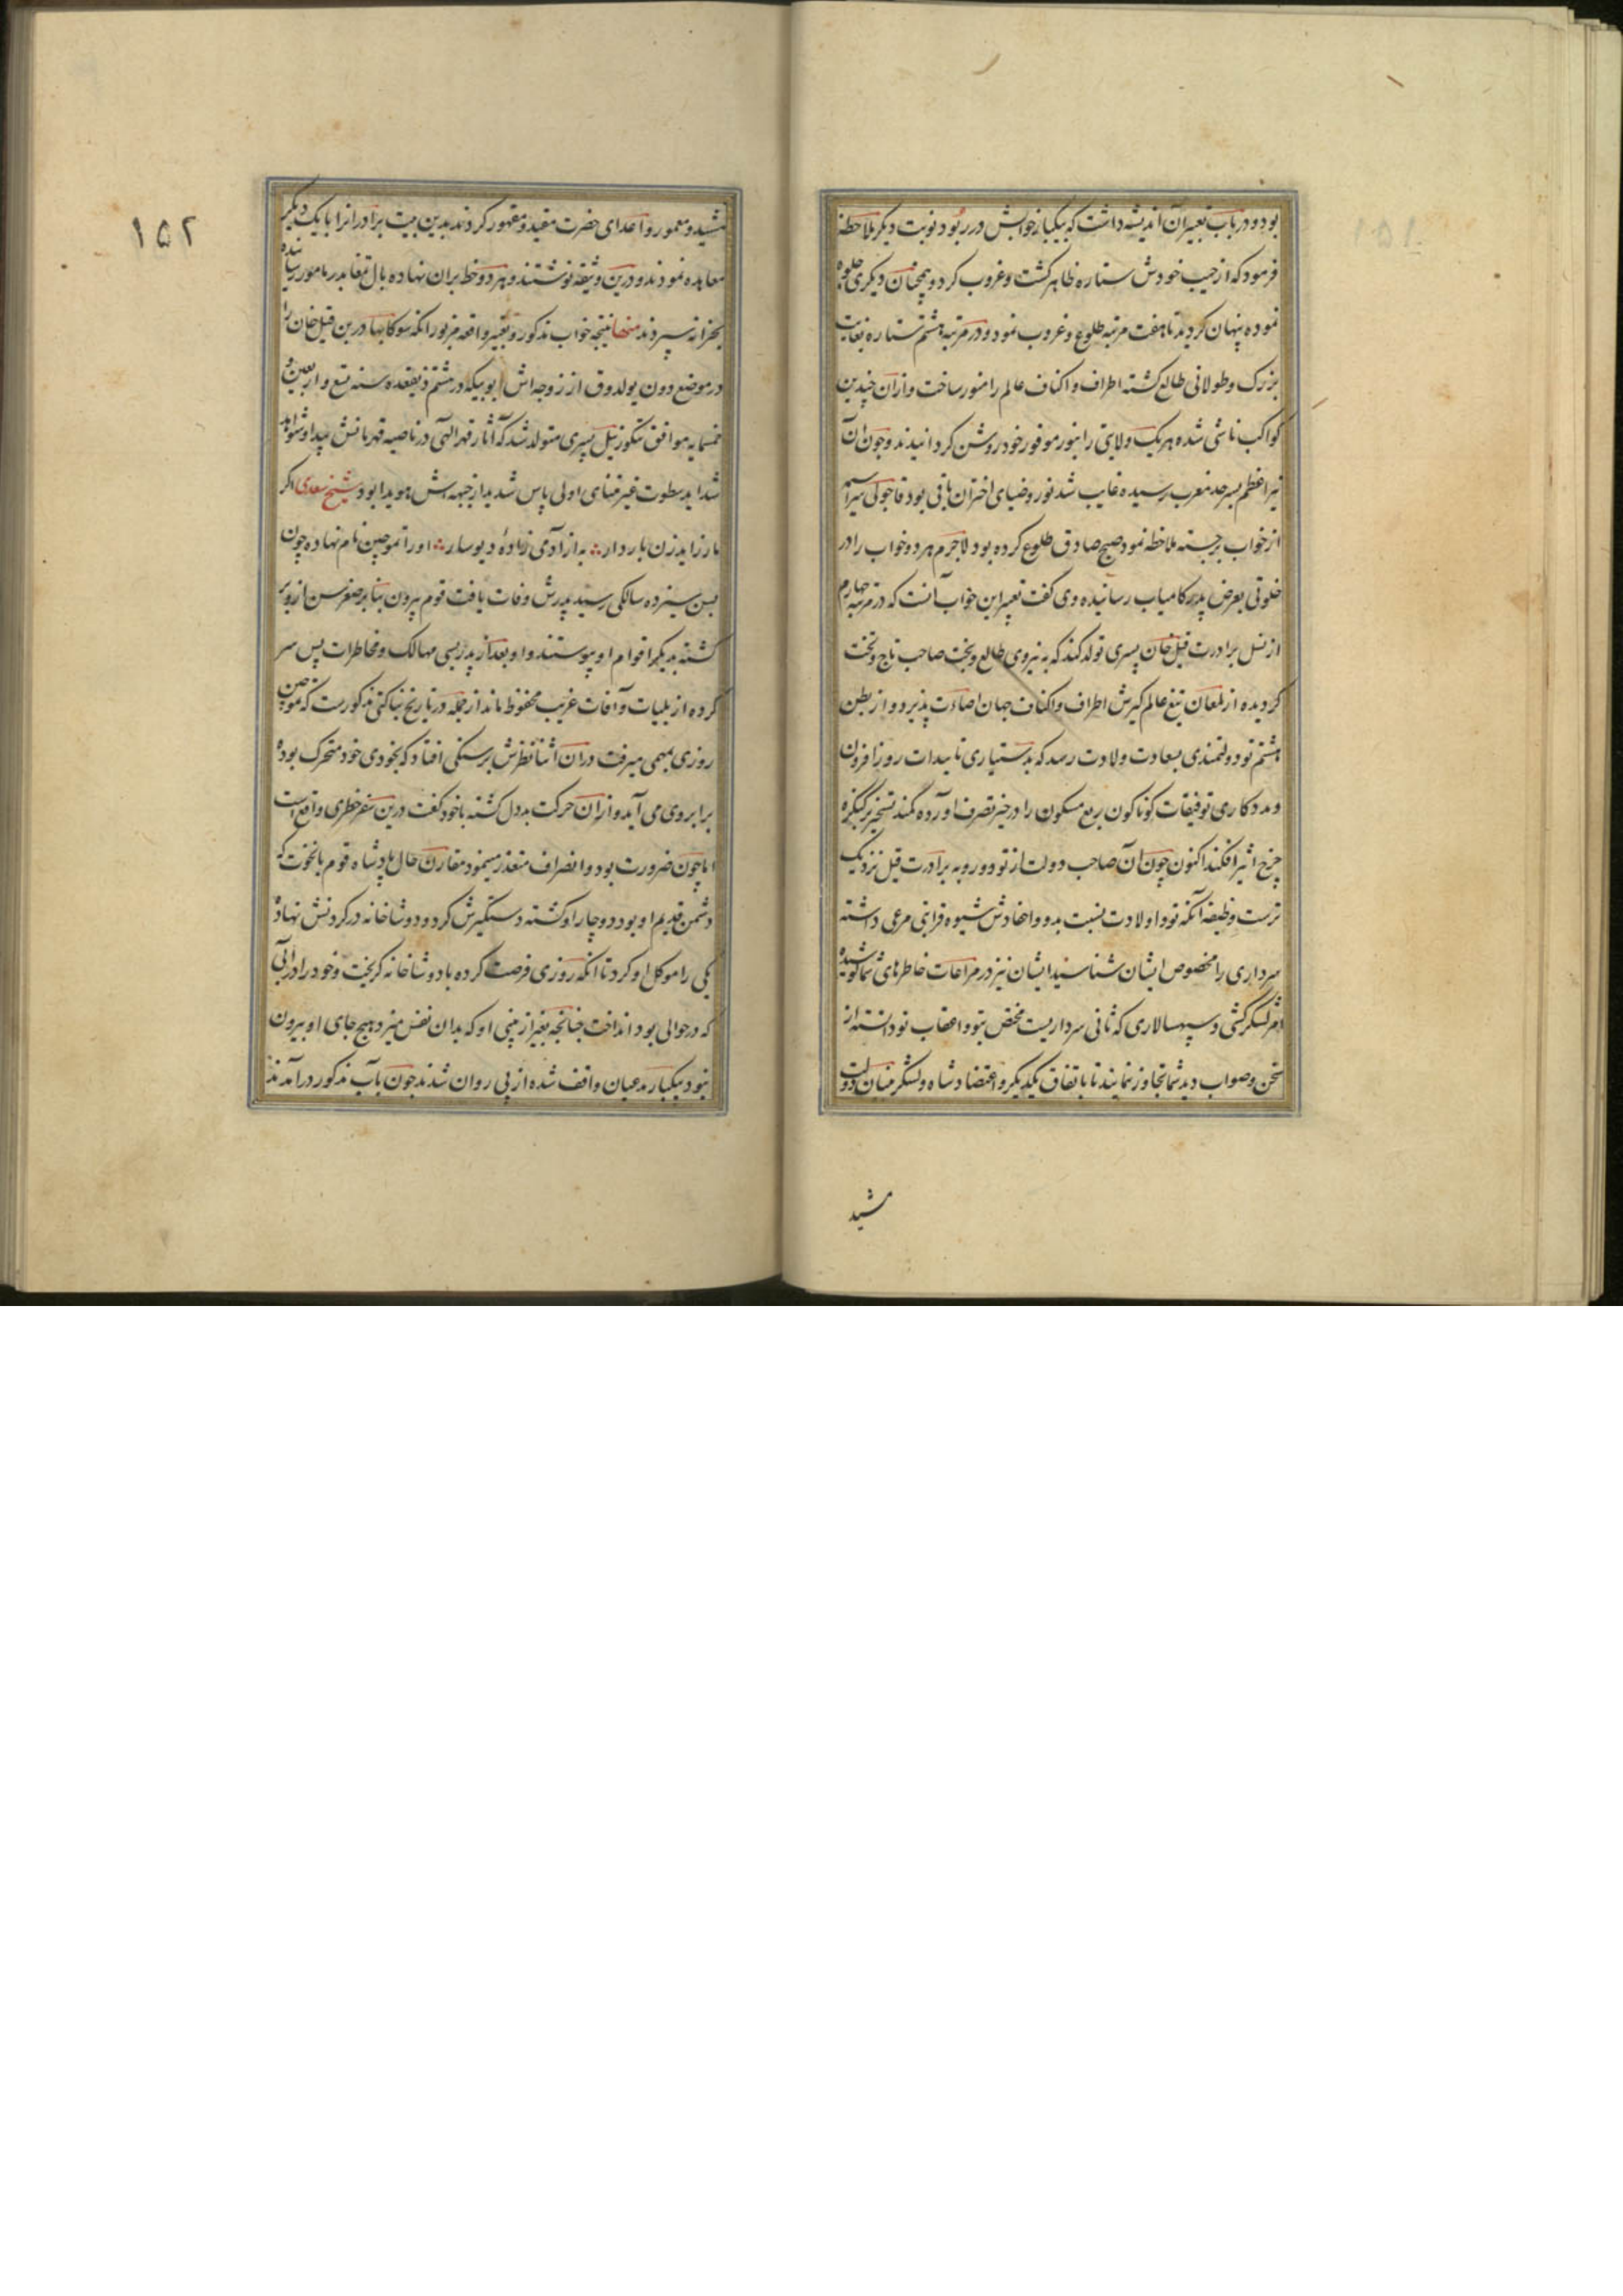 بود و در باب تعبیر آن اندیشه داشت که بیکبار خوابش در ربود و نوبت دیگر ملاحظه
فرمود که از جیب خودش ستاره ظاهر کشت و غروب کرد و همچنان دیکری جلوه
نموده پنهان کردید تا هفت مرتبه طلوع و غروب نمود و در مرتبه هشتم ستاره بغایت
بزرک و طولانی طالع کشته اطراف و اکناف عالم را منور ساخت و ازان چندین
کواکب ناشی شده هر یک ولایتی را بنور موفور خود روشن کردانیدند و چون آن
نیر اعظم بسرحد مغرب رسیده غایب شد نور و ضیای اختران باقی بود قاجولی سراسیمه
از خواب برجسته ملاحظه نمود صبح صادق طلوع کرده بود لاجرم هر دو خواب را در
خلوتی بعرض پدر کامیاب رسانیده وی کفت تعبیر این خواب آنست که در مرتبه چهارم
از نسل برادرت قبل خان پسری تولد کند که به نیروی طالع و بخت صاحب تاج و تخت
کردیده از لمعان تیغ عالم کیرش اطراف و اکناف جهان اضاءت پذیرد و از بطن
هشتم تو دولتمندی بسعادت ولادت رسد که بدستیاری تاییدات روز افزون
و مددکاری توفیقات کوناکون ربع مسکون را در حیز تصرف آورده کمند تسخیر بر کنکره
چرخ اثیر افکند اکنون چون آن صاحب دولت از تو دور و به برادرت قبل نزدیک
ترست وظیفه آنکه تو و اولادت نسبت بدو و احفادش شیوه قرابتی مرعی داشته
سرداری را مخصوص ایشان شناسید ایشان نیز در مراعات خاطرهای شما کوشیده
امر لشکرکشی و سپهسالاری که ثانی سرداریست مخصّ بتو و اعقاب تو دانسته از
سخن و صواب دید شما تجاوز ننمایند تا باتفاق یکدیکر و اعتضاد شاه و لشکر مبنان دولت
مشید
۱۵۲
مشید و معمور و اعدای حضرت مقید و مقهور کردند بدین بیت برادرانرا با یک دیکر
معاهده نمودند و درین وثیقه نوشتند و هر دو خط بران نهاده بال تمغا بدر نامور رسانیده
بخزانه سپردند منها نتیجه خواب مذکور و تعبیر واقعه مزبور آنکه یسوکا بهادر بن قبل خان را
در موضع دون یولدوق از زوجه‌اش ابوبیکه در هشتم ذیقعده سنه تسع و اربعین و
خمسمایه موافق تنکوزئیل پسری متولد شد که آثار قهر الهی در ناصیه قهرمانش پیدا و شواهد
شداید سطوت غیر متناهی اولی باس شدید از جبهه‌اش هویدا بود شیخ سعدی اکر
مار زاید زن باردار ∴ به از آدمی زادهٔ دیوسار ∴ او را تموچین نام نهاده چون
بسن سیزده سالکی رسید پدرش وفات یافت قوم نیرون بنابر صغر سن ازو بر
کشته بدیکر اقوام او پیوستند و او بعد از پدر بسی مهالک و مخاطرات پس سر
کرده از بلیات و آفات غریب محفوظ ماند از جمله در تاریخ بناکتی مذکورست که تموچین
روزی بمهمی میرفت در آن اثنا نظرش بر سنکی افتاد که بخودی خود متحرک بوده
برابر وی می آید و ازان حرکت بددل کشته با خود کفت درین سفر خطری واقع است
اما چون ضرورت بود و انصراف متعذر مینمود مقارن حال پادشاه قوم بانخوت که
دشمن قدیم او بود دوچار او کشته دستکیرش کرد و دوشاخانه در کردنش نهاده
یکی را موکل او کرد تا آنکه روزی فرصت کرده با دوشاخانه کریخت و خود را در آبی
که در حوالی بود انداخت چنانچه بغیر از بینی او که بدان نفس میزد هیچ جای او بیرون
نبود بیکبار مدعیان واقف شده از پی روان شدند چون بآب مذکور درآمدند